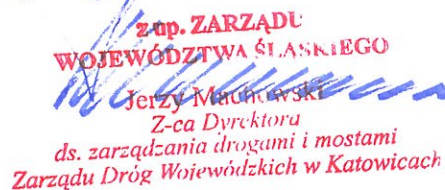 z up. ZARZĄDU
WOJEWÓDZTWA ŚLĄSKIEGO
Jerzy Machowski
Z-ca Dyrektora
ds. zarządzania drogami i mostami
Zarządu Dróg Wojewódzkich w Katowicach